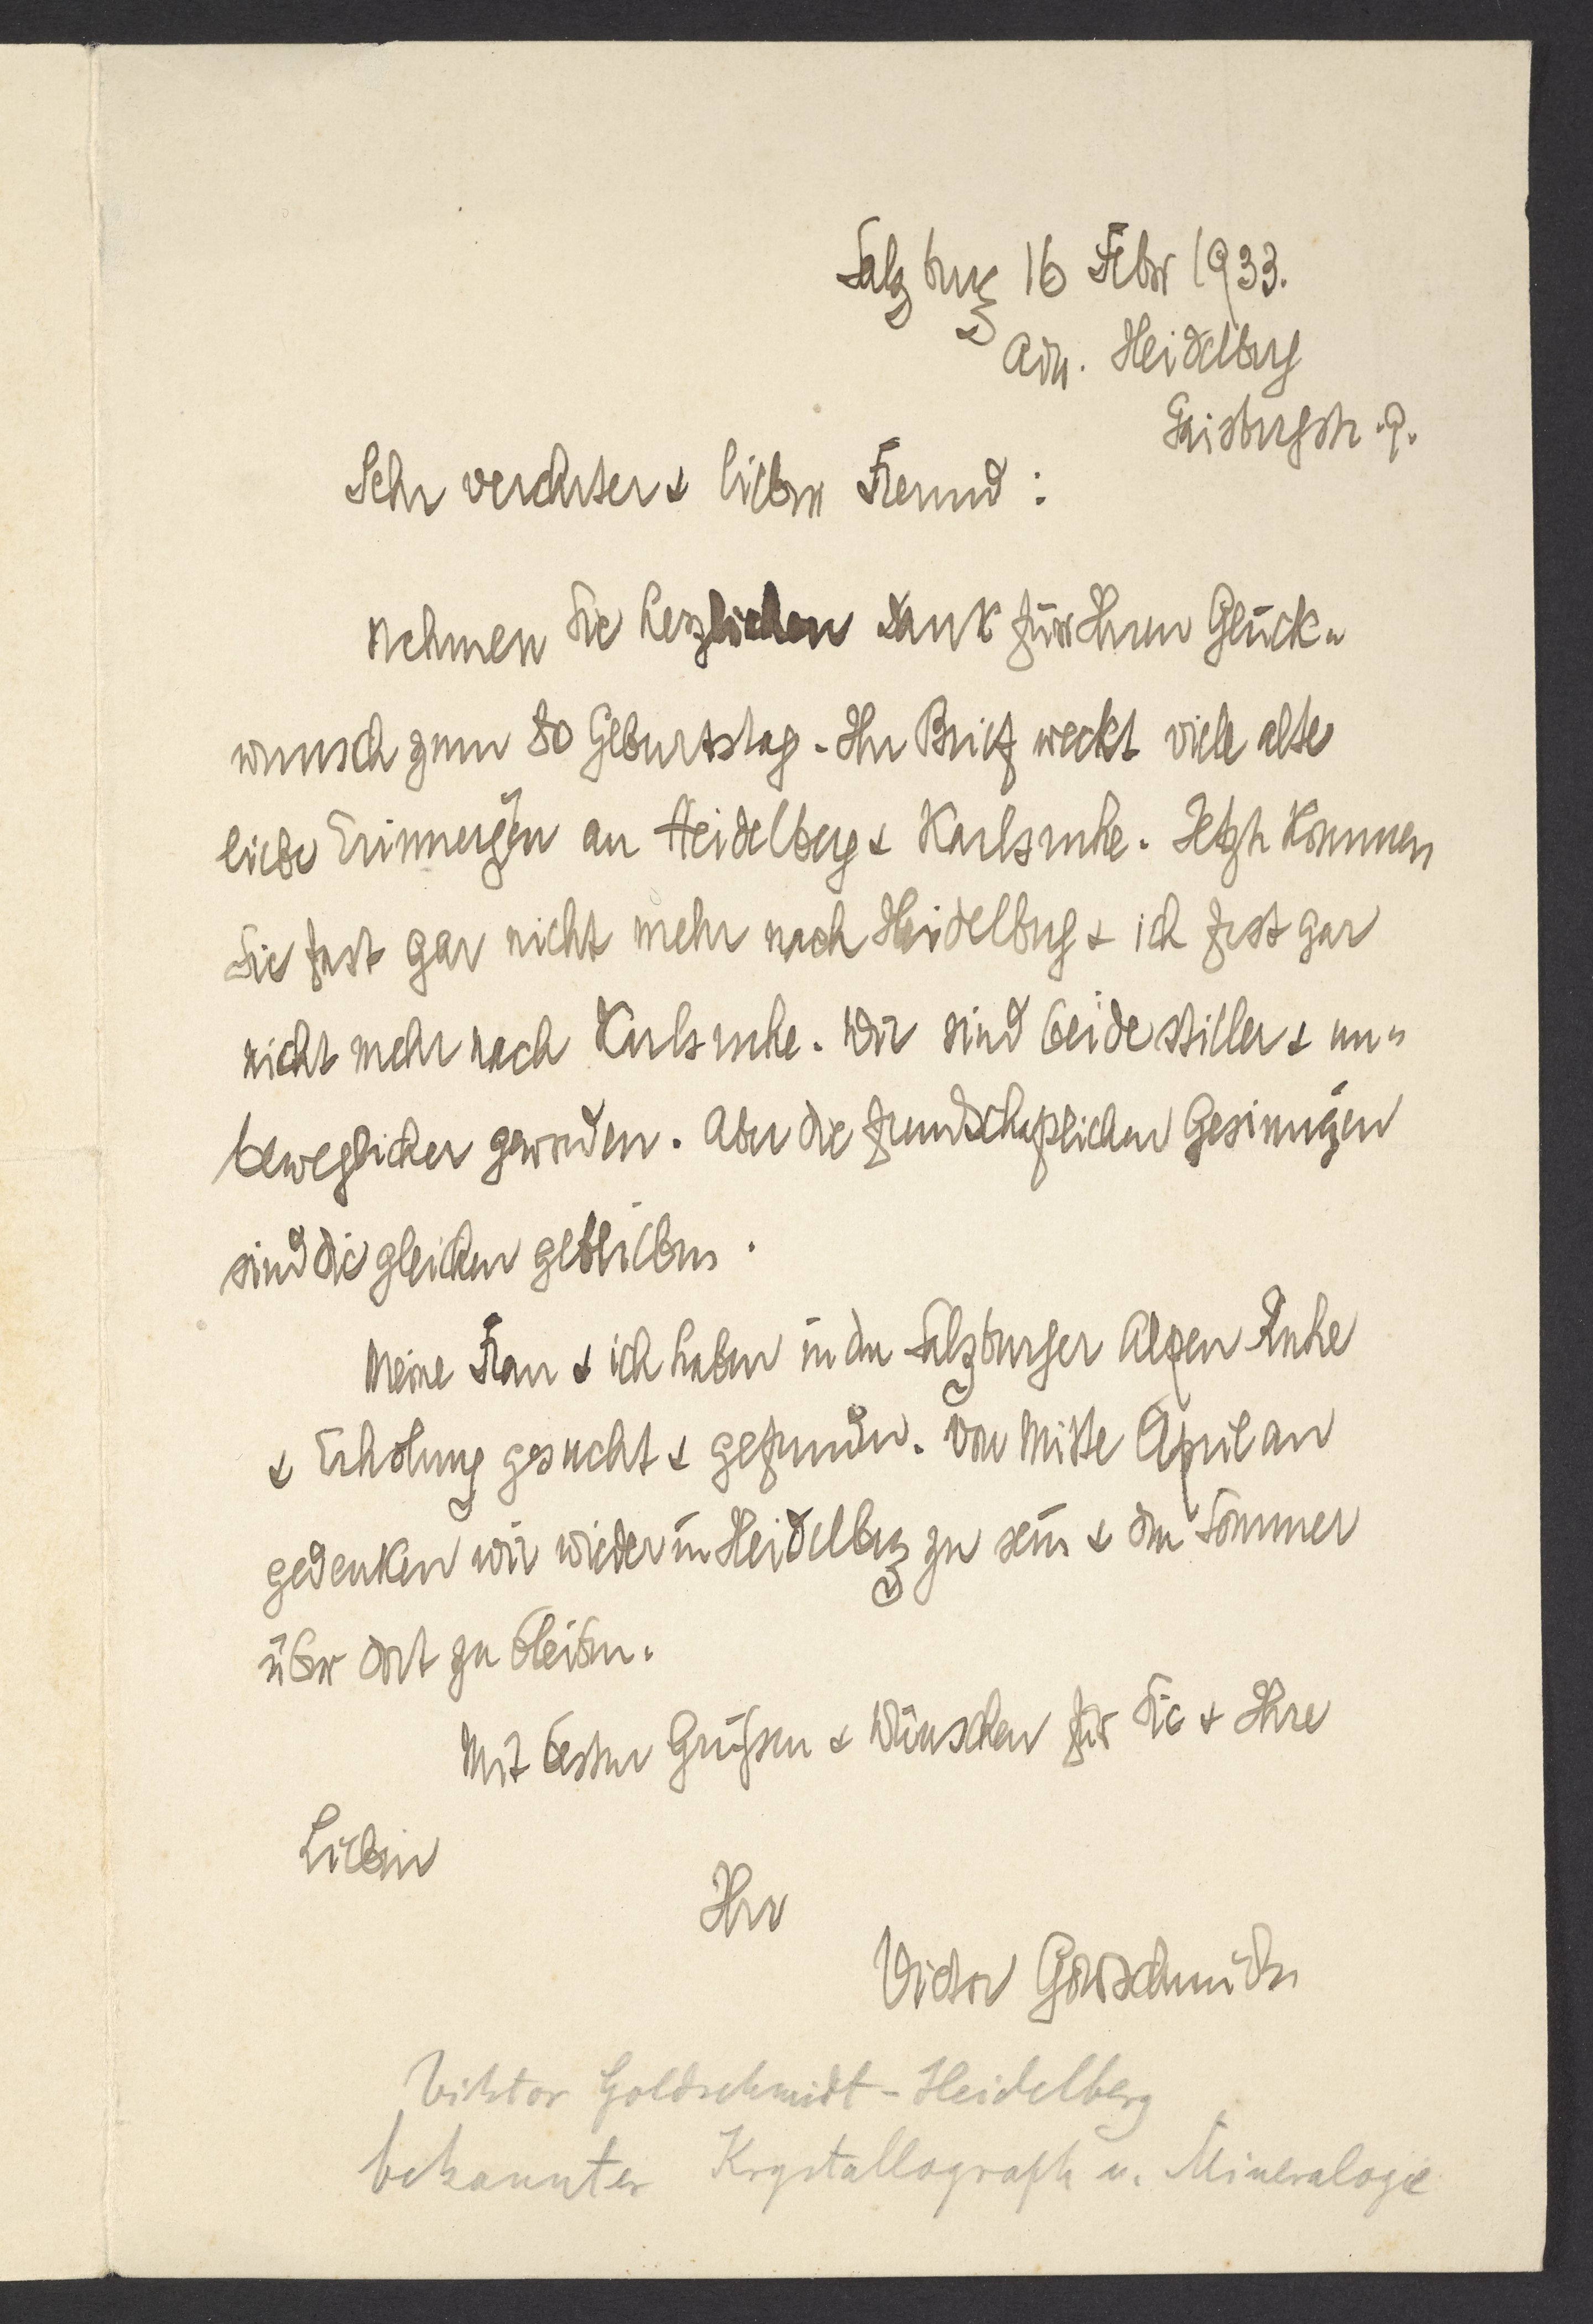 Salzburg 16 Febr 1933.
Adr. Heidelberg
Gaisbergstr. 9.
Sehr verehrter & lieber Freund:
Nehmen Sie herzlichen Dank für Ihren Glück„
wunsch zum 80 Geburtstag. Ihr Brief weckt viele alte
liebe Erinnergen an Heidelberg & Karlsruhe. Jetzt kommen
Sie fast gar nicht mehr nach Heidelberg & ich fast gar
nicht mehr nach Karlsruhe. Wir sind beide stiller & un„
beweglicher geworden. Aber die freundschaftlichen Gesinngen
sind die gleichen geblieben.
Meine Frau & ich haben in den Salzburger Alpen Ruhe
& Erholung gesucht & gefunden. Von Mitte April an
gedenken wir wieder in Heidelberg zu sein & den Sommer
über dort zu bleiben.
Mit besten Grüßen & Wünschen für Sie & Ihre
Lieben
Ihr
Victor Goldschmidt
Viktor Goldschmidt - Heidelberg
bekannter Krystallograph u. Mineraloge